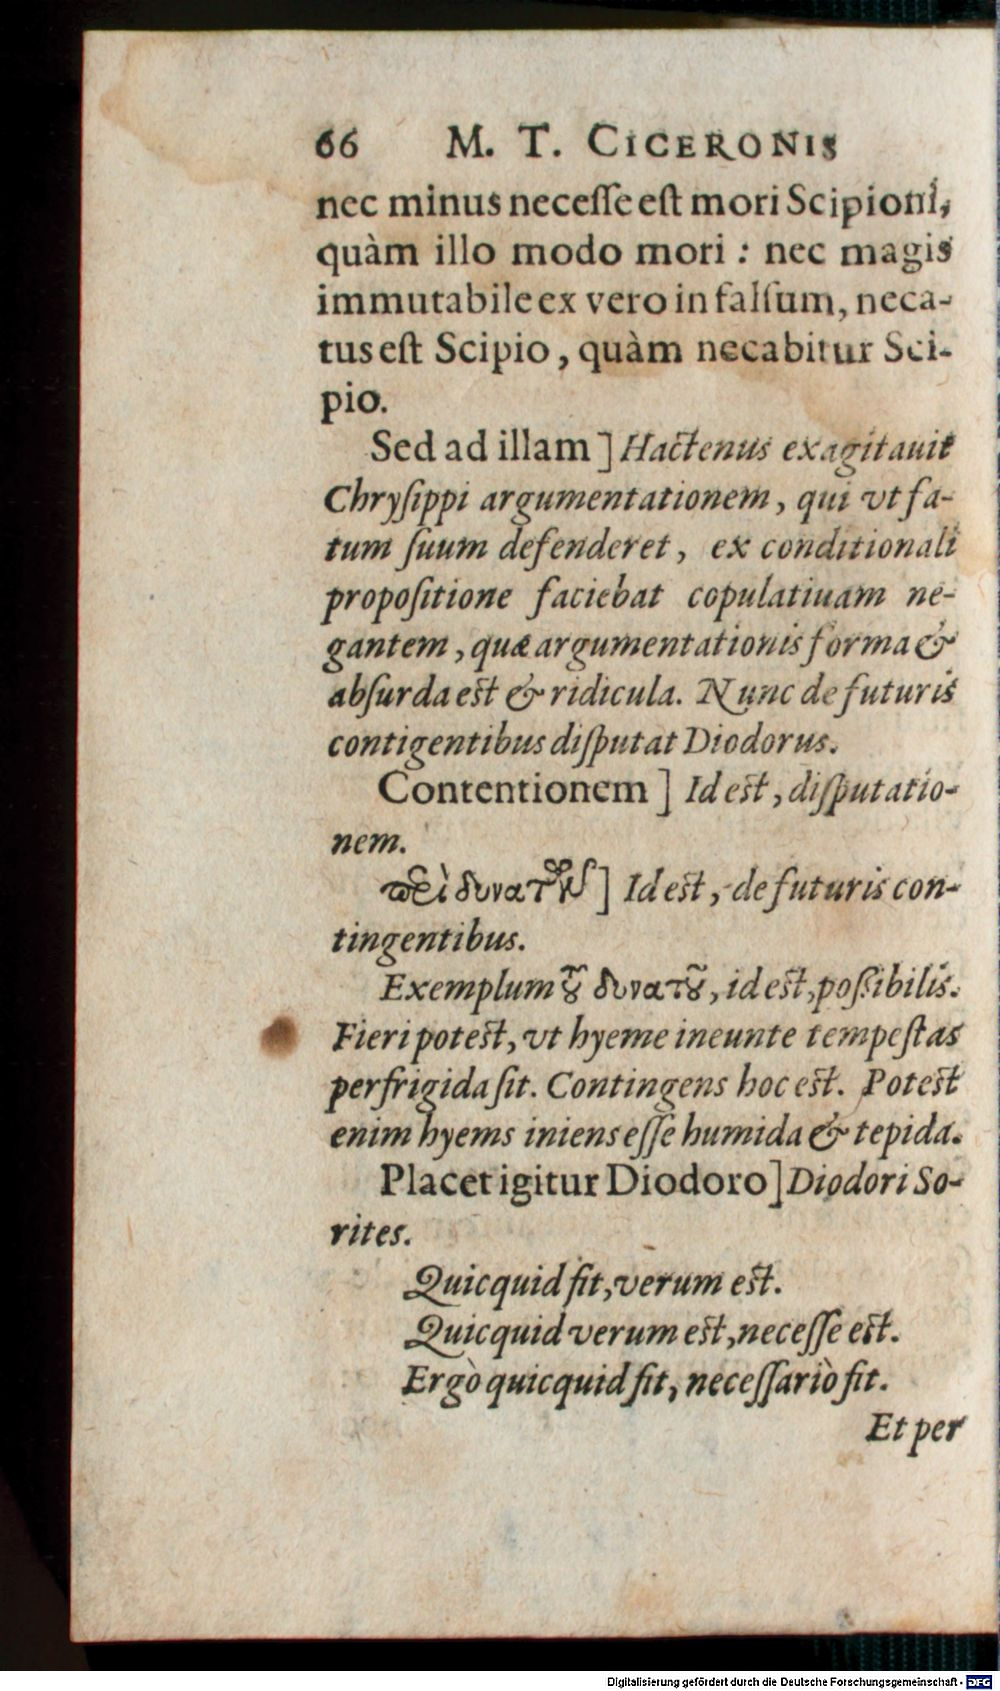 66 M. T. CICERONIS
nec minus neceſſe eſt mori Scipioni,
quàm illo modo mori : nec magis
immutabile ex vero in falſum, neca-
tus eſt Scipio, quàm necabitur Sci-
pio.
Sed ad illam ] Hactenus exagitauit
Chryſippi argumentationem, qui vt fa-
tum ſuum defenderet, ex conditionali
propoſitione faciebat copulatiuam ne-
gantem, quæ argumentationis forma &
abſurda est & ridicula. Nunc de futuris
contigentibus diſputat Diodorus.
Contentionem ] Id est, diſputatio-
nem.
περὶ δυνατῶν ] Id est, de futuris con-
tingentibus.
Exemplum τοῦ δυνατοῦ, id est, poſſibilis.
Fieri potest, vt hyeme ineunte tempeſtas
perfrigida ſit. Contingens hoc est. Potest
enim hyems iniens eſſe humida & tepida.
Placet igitur Diodoro ] Diodori So-
rites.
Quicquid fit, verum est.
Quicquid verum est, neceſſe est.
Ergò quicquid fit, neceſſariò fit.
Et per
Digitalisierung gefördert durch die Deutsche Forschungsgemeinschaft - DFG